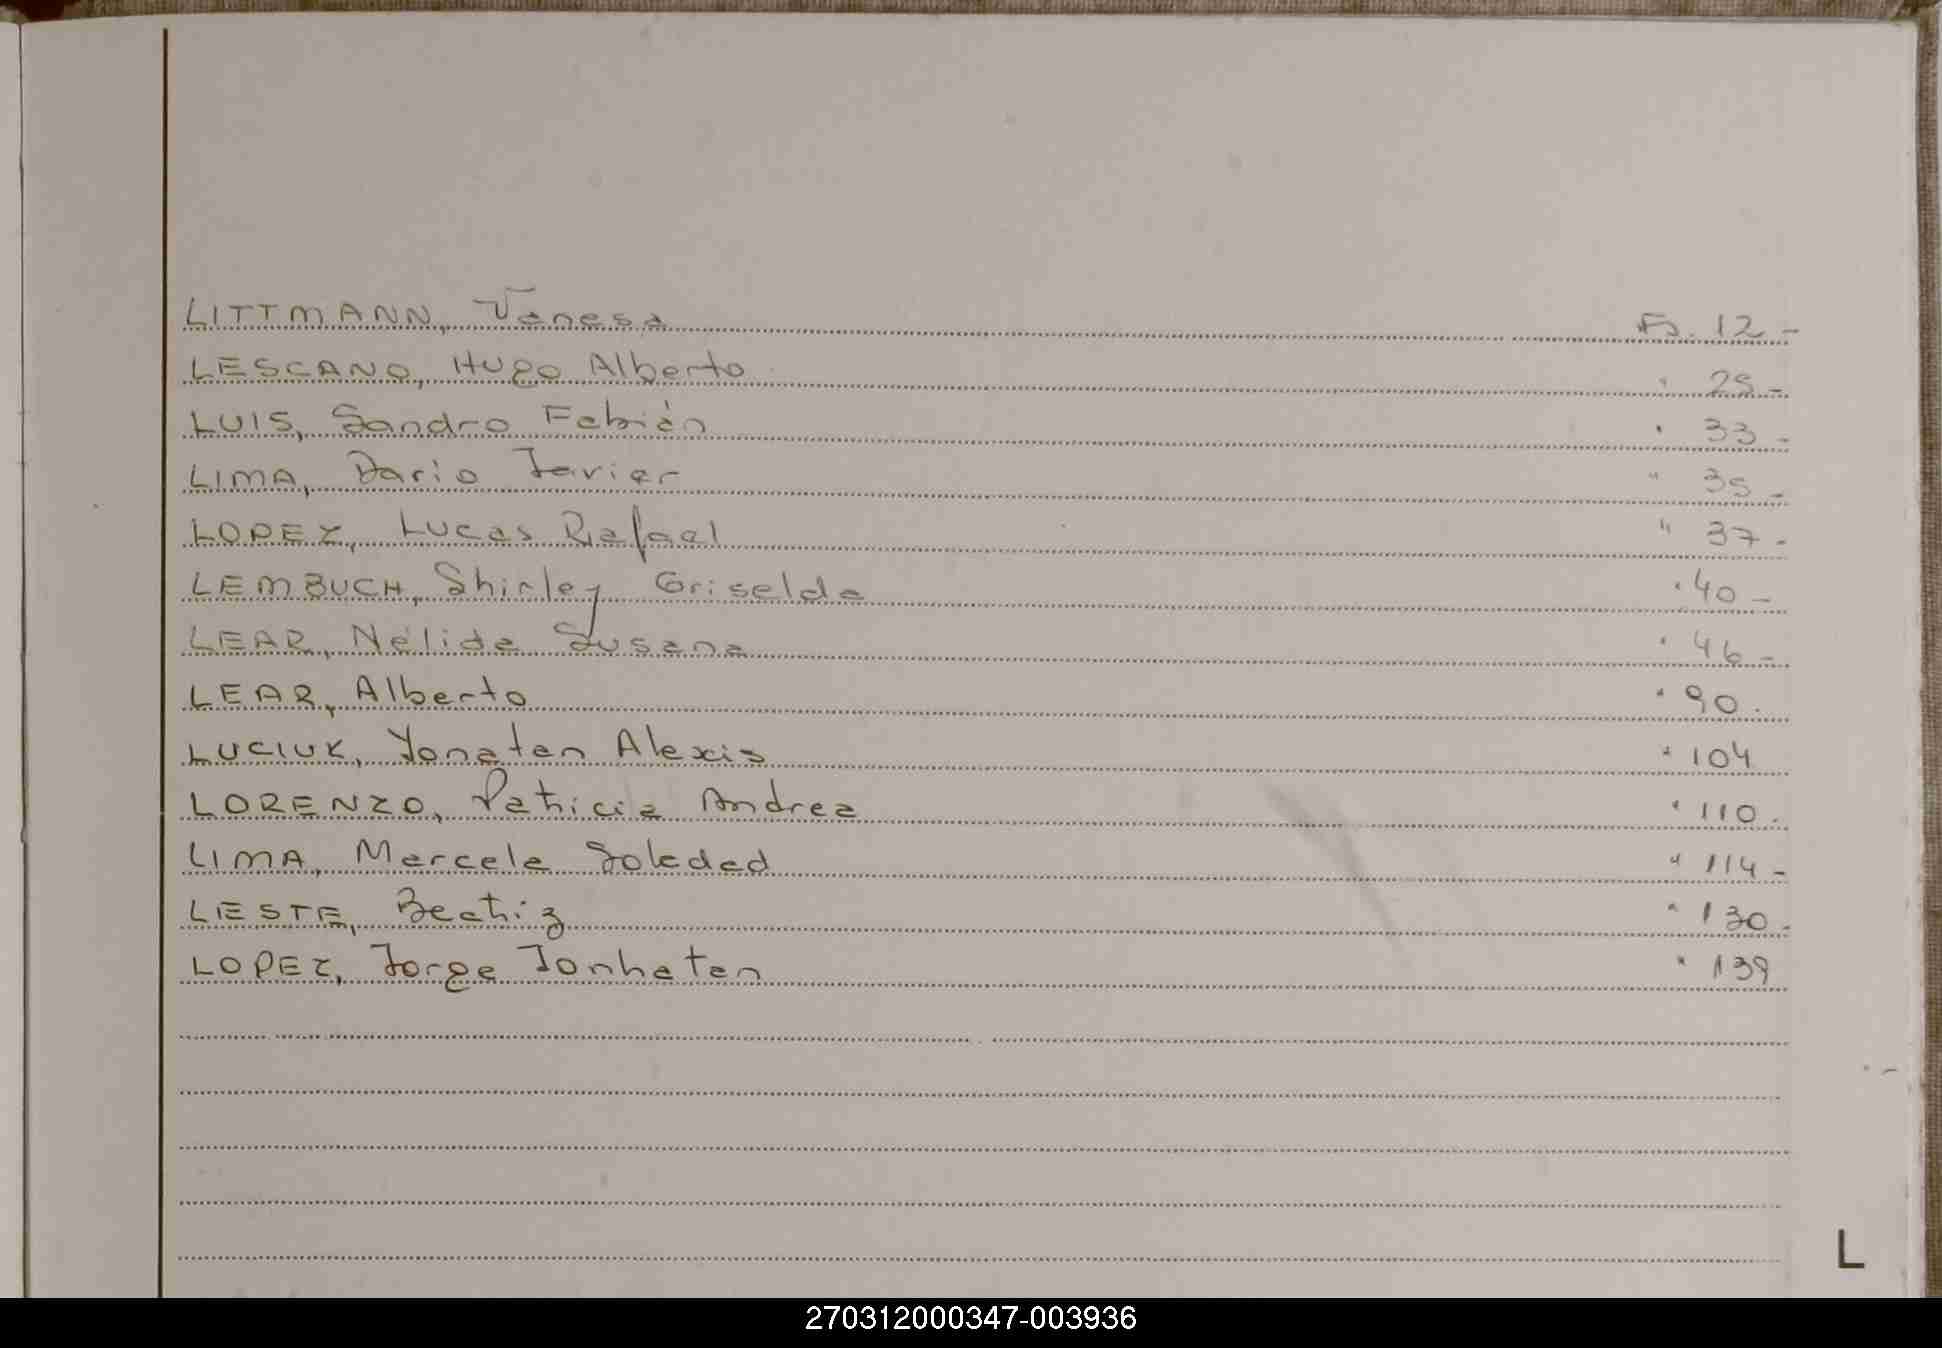 LITTMANN, Vanesa Fs. 12 -
LESCANO, Hugo Alberto " 25 -
LUIS, Sandro Fabián " 33 -
LIMA, Dario Javier " 35 -
LOPEZ, Lucas Rafael " 37 -
LEMBUCH, Shirley Griselda " 40 -
LEAR, Nélida Susana " 46 -
LEAR, Alberto " 90 .
LUCIUK, Yonatan Alexis " 104
LORENZO, Patricia Andrea " 110 .
LIMA, Marcela Soledad " 114 -
LIESTE, Beatriz " 130 .
LOPEZ, Jorge Jonhatan " 139
L
270312000347-003936